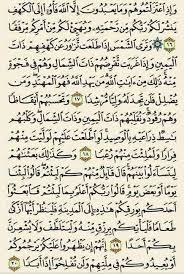 وَإِذِ اعْتَزَلْتُمُوهُمْ وَمَا يَعْبُدُونَ إِلَّا اللَّهَ فَأْوُوا إِلَى الْكَهْفِ
يَنشُرْ لَكُمْ رَبُّكُم مِّن رَّحْمَتِهِ وَيُهَيِّئْ لَكُم مِّنْ أَمْرِكُم مِّرْفَقًا
١٦ ۞ وَتَرَى الشَّمْسَ إِذَا طَلَعَت تَّزَاوَرُ عَن كَهْفِهِمْ ذَاتَ
الْيَمِينِ وَإِذَا غَرَبَت تَّقْرِضُهُمْ ذَاتَ الشِّمَالِ وَهُمْ فِي فَجْوَةٍ
مِّنْهُ ذَٰلِكَ مِنْ آيَاتِ اللَّهِ مَن يَهْدِ اللَّهُ فَهُوَ الْمُهْتَدِ وَمَن
يُضْلِلْ فَلَن تَجِدَ لَهُ وَلِيًّا مُّرْشِدًا ١٧ وَتَحْسَبُهُمْ أَيْقَاظًا
وَهُمْ رُقُودٌ وَنُقَلِّبُهُمْ ذَاتَ الْيَمِينِ وَذَاتَ الشِّمَالِ وَكَلْبُهُم
بَاسِطٌ ذِرَاعَيْهِ بِالْوَصِيدِ لَوِ اطَّلَعْتَ عَلَيْهِمْ لَوَلَّيْتَ مِنْهُمْ
فِرَارًا وَلَمُلِئْتَ مِنْهُمْ رُعْبًا ١٨ وَكَذَٰلِكَ بَعَثْنَاهُمْ
لِيَتَسَاءَلُوا بَيْنَهُمْ قَالَ قَائِلٌ مِّنْهُمْ كَمْ لَبِثْتُمْ قَالُوا لَبِثْنَا
يَوْمًا أَوْ بَعْضَ يَوْمٍ قَالُوا رَبُّكُمْ أَعْلَمُ بِمَا لَبِثْتُمْ فَابْعَثُوا
أَحَدَكُم بِوَرِقِكُمْ هَٰذِهِ إِلَى الْمَدِينَةِ فَلْيَنظُرْ أَيُّهَا أَزْكَىٰ
طَعَامًا فَلْيَأْتِكُم بِرِزْقٍ مِّنْهُ وَلْيَتَلَطَّفْ وَلَا يُشْعِرَنَّ
بِكُمْ أَحَدًا ١٩ إِنَّهُمْ إِن يَظْهَرُوا عَلَيْكُمْ يَرْجُمُوكُمْ
أَوْ يُعِيدُوكُمْ فِي مِلَّتِهِمْ وَلَن تُفْلِحُوا إِذًا أَبَدًا ٢٠